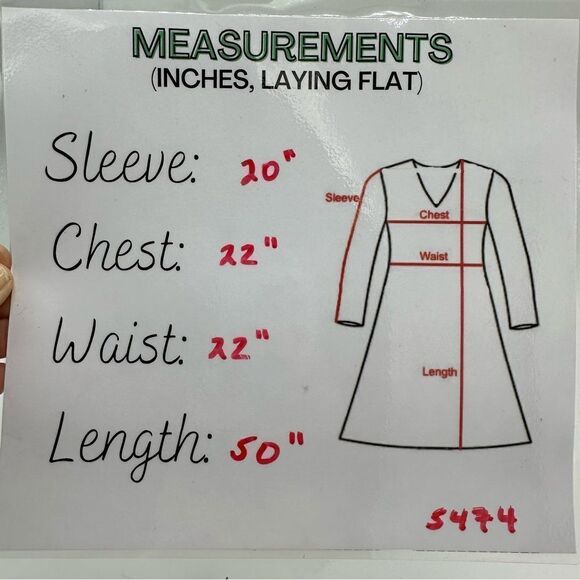 MEASUREMENTS
(INCHES, LAYING FLAT)
Sleeve: 20"
Chest: 22"
Waist: 22"
Length: 50"
Sleeve
Chest
Waist
Length
5474